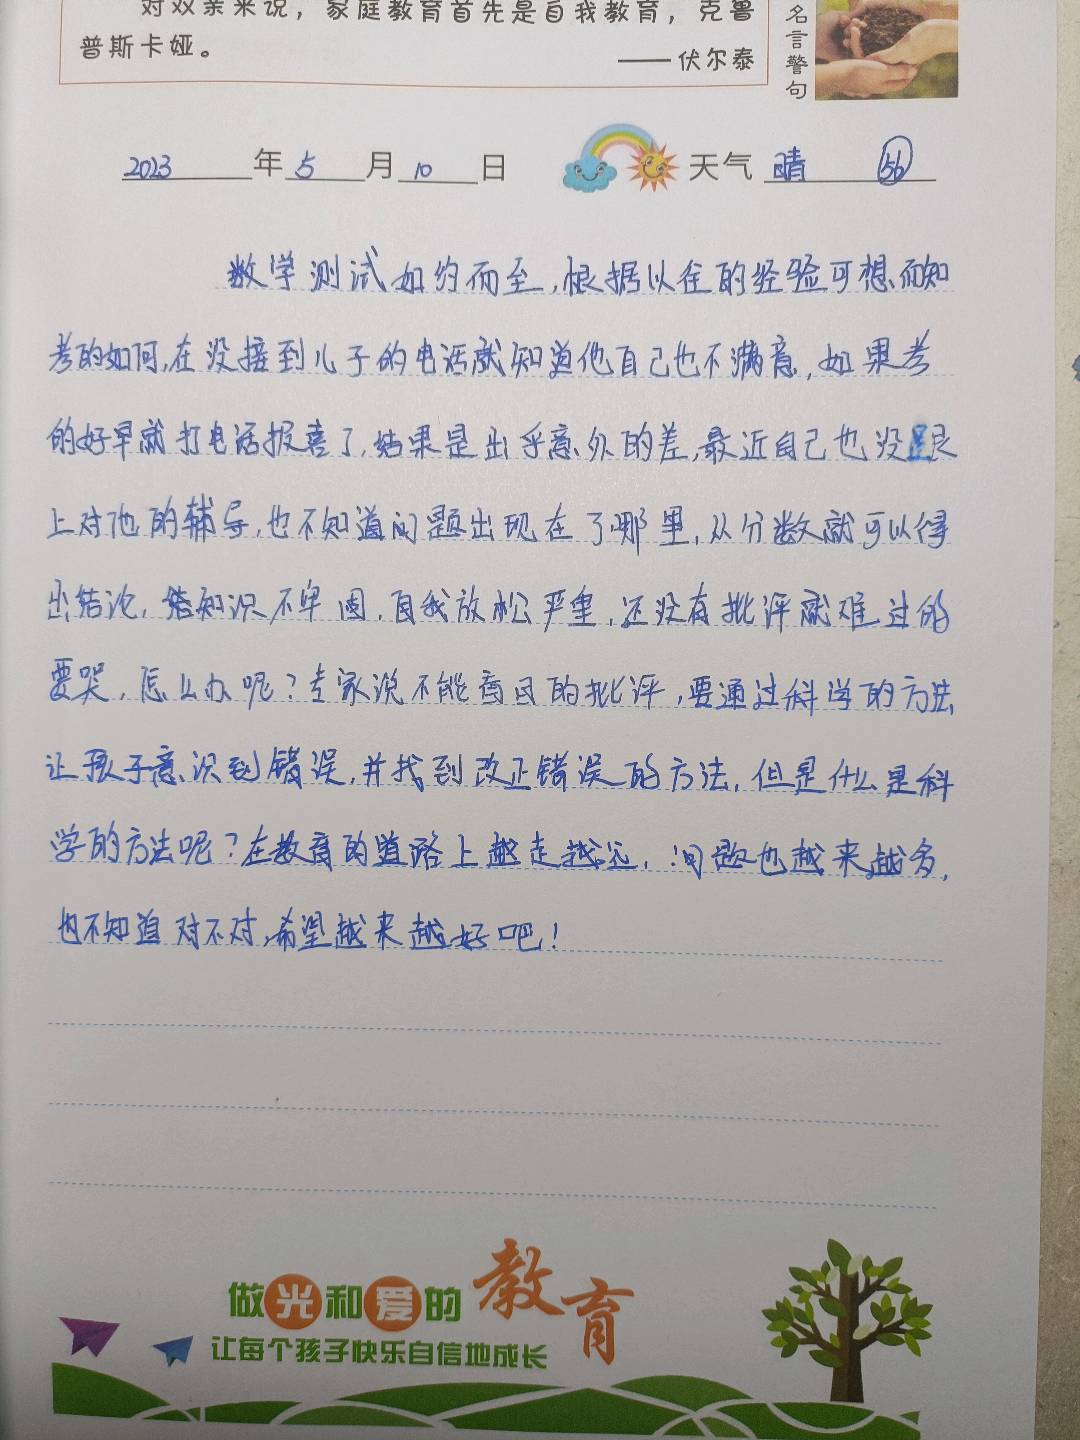 对双亲来说，家庭教育首先是自我教育，克鲁
普斯卡娅。
——伏尔泰
名言警句
2023年5月10日 天气 晴 56
数学测试如约而至,根据以往的经验可想而知
考的如何,在没接到儿子的电话就知道他自己也不满意,如果考
的好早就打电话报喜了,结果是出乎意外的差,最近自己也没跟
上对他的辅导,也不知道问题出现在了哪里,从分数就可以得
出结论,知识不牢固,自我放松严重,还没有批评就难过的
要哭,怎么办呢?专家说不能盲目的批评,要通过科学的方法
让孩子意识到错误,并找到改正错误的方法,但是什么是科
学的方法呢?在教育的道路上越走越远,问题也越来越多,
也不知道对不对,希望越来越好吧!
做光和爱的教育
让每个孩子快乐自信地成长